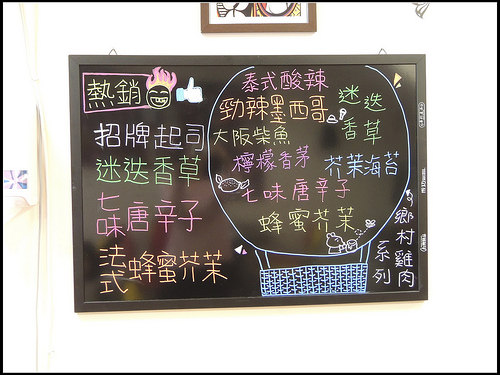 熱銷
招牌起司
迷迭香草
七味唐辛子
法式蜂蜜芥茉
泰式酸辣
勁辣墨西哥
大阪柴魚
迷迭香草
檸檬香茅
芥茉海苔
七味唐辛子
蜂蜜芥茉
鄉村雞肉系列